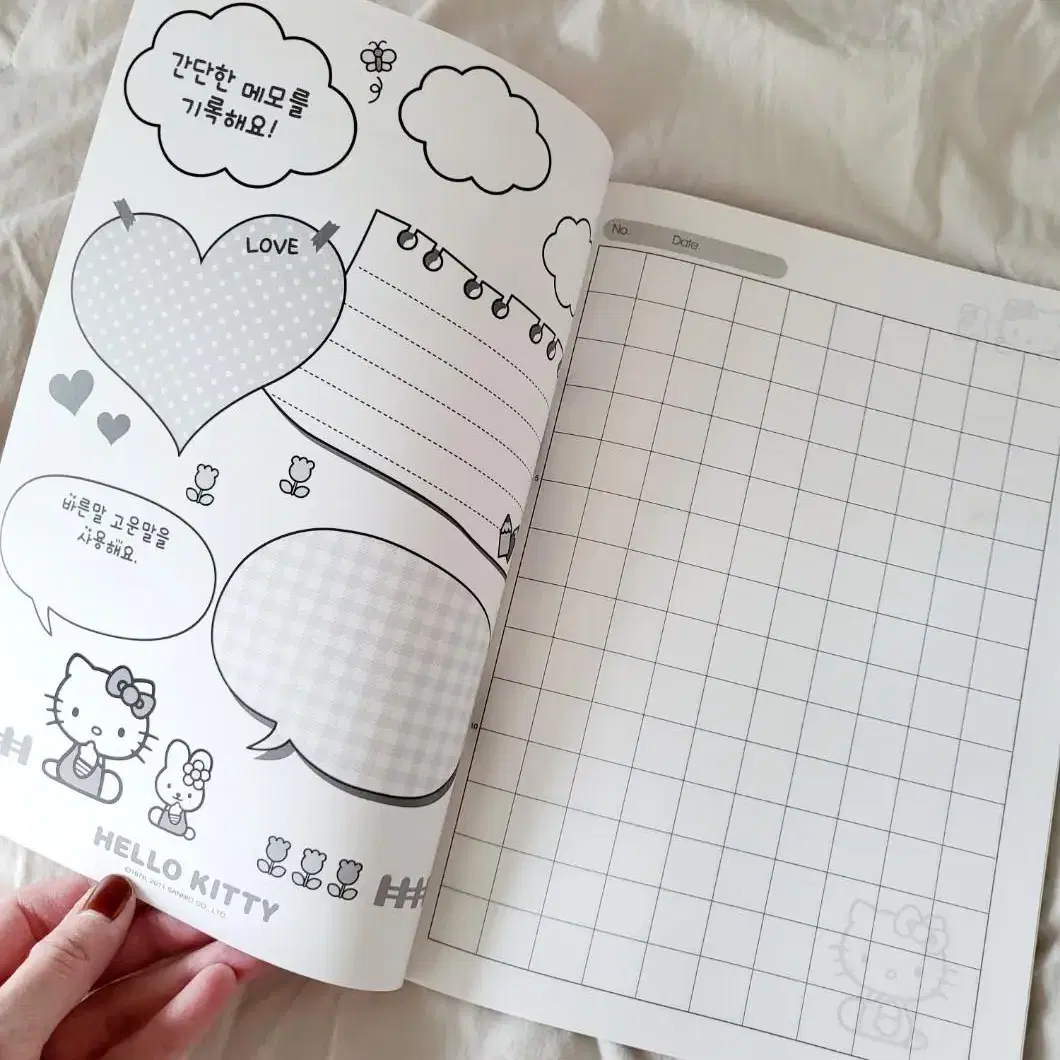 간단한 메모를
기록해요!
LOVE
바른말 고운말을
사용해요.
HELLO KITTY
©1976, 2011 SANRIO CO., LTD.
No. Date.
5
10